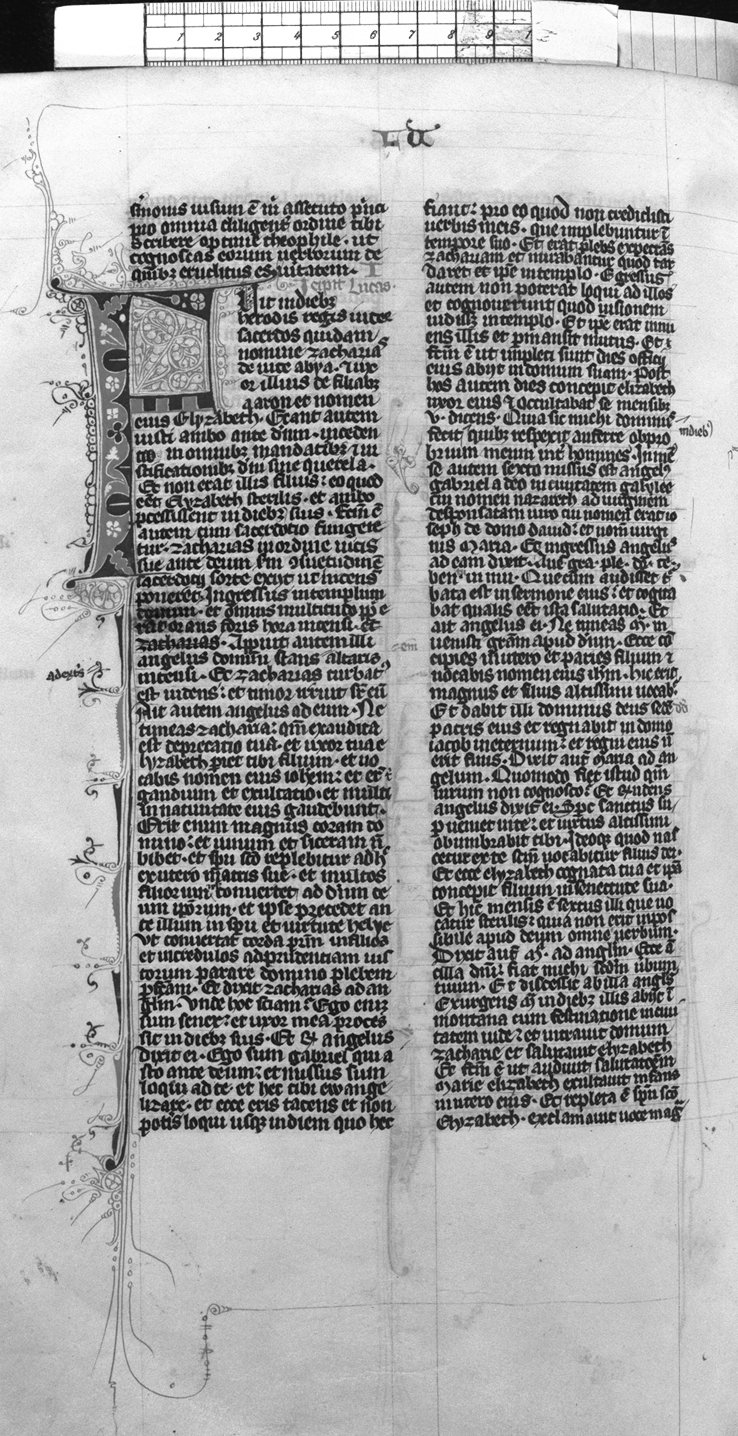 1 2 3 4 5 6 7 8 9 1
L U
simonis uisum ē m̄ assecuto p̄nci
pio omnia diligent̄ ordine tibi
scribere optime theophile · ut
cognoscas eorum uerborum de
quibꝫ eruditus es ueritatem ·
Icipit Lucas ·
Fuit in diebꝫ
herodis regis iudee
sacerdos quidam
nomine zacharias
de uice abya · ⁊ uxor
or illius de filiabꝫ
aaron et nomen
eius Elyzabeth · Erant autem
iusti ambo ante dn̄m · inceden
tes in omnibꝫ mandatibꝫ ⁊ iu
stificationibꝫ dn̄i sine querela ·
Et non erat illis filius : eo quod
eēt Elyzabeth sterilis · et ambo
p̄cessissent in diebꝫ suis · Fc̄m ē
autem cum sacerdotio funge̅re
tur · zacharias in ordine uicis
sue ante deum · s̄m 9suetudinē
sacerdocij sorte exijt ut incens
poneret · Ingressus in templum
domini · et omnis multitudo pp̄ e
rat orans foris hora incensi · Et
zacharias · Apparuit autem illi
angelus domini stans altaris
adextrꝭ
incensi · Et zacharias turbat9
est uidens : et timor irruit sr̄ eū
Ait autem angelus ad eum · Ne
timeas zacharia : qm̄ exaudita
est deprecatio tua · et uxor tua e
lyzabeth pariet tibi filium · et uo
cabis nomen eius ioh̄em : et er̄ t̄
gaudium et exultatio · et multi
in natiuitate eius gaudebunt ·
Erit enim magnus coram do
mino : et uinum et siceram n̄
bibet · et sp̄u sc̄o replebitur adh̄
ex utero matris sue · et multos
filiorum conuertet ad dn̄m de
um ip̄orum · et ipse precedet an
te illum in sp̄u et uirtute helye
Vt conuertat corda pr̄m in filios
et incredulos ad prudentiam ius
torum parare domino plebem
pf̄cam · Et dixit zacharias ad an
gl̄m · Vnde hoc sciam : Ego enī
sum senex : et uxor mea proces
sit in diebꝫ suis · Et R̄ angelus
dixit ei · Ego sum gabriel qui a
sto ante deum : et missus sum
loqui ad te · et hec tibi ewange
lizare · et ecce eris tacens et non
potis loqui usqꝫ in diem quo hec
fiant : pro eo quod non credidisti
uerbis meis · que implebuntur ī
tempore suo · Et erat plebs expectās
zachariam et mirabantur quod tar
daret et ipse in templo · Egressus
autem non poterat loqui ad illos
et cognouerunt quod uisionem
uidissꝫ in templo · Et ip̄e erat innu
ens illis et p̄mansit mutus · Et
fc̄m ē ut impleti sunt dies officij
eius abijt in domum suam · Post
hos autem dies concepit elizabeth
uxor eius ⁊ occultabat se mensibꝫ
v · dicens · Quia sic michi dominus
fecit quibꝫ respexit auferre obpro
indieb9
brium meum int̄ homines · In mē
se autem sexto missus est angelꝰ
gabriel a deo in ciuitatem galylee
cui nomen nazareth ad uirginem
desponsatam uiro cui nomen erat io
seph de domo dauid : et nom̄ uirgi
nis Maria · Et ingressus angelus
ad eam dixit · Aue gra · ple · dn̄s te ·
ben · in mu · Que cum audisset t̄
bata est in sermone eius : et cogita
bat qualis eēt ista salutatio · Et
ait angelus ei · Ne timeas M̄ · in
uenisti gr̄am apud dn̄m · Ecce cō
cipies in utero et paries filium ⁊
em
uocabis nomen eius ih̄m · hic erit
magnus et filius altissimi uocab̄
Et dabit illi dominus deus sedē dd
patris eius et regnabit in domo
iacob in eternum : et regni eius n̄
erit finis · Dixit aut̄ maria ad an
gelum · Quomodo fiet istud qm̄
uirum non cognosco : Et R̄ndens
angelus dixit ei · Spc̄ sanctus su
p ueniet in te : et uirtus altissimi
obumbrabit tibi · Ideoqꝫ quod nas
cetur ex te sc̄m uocabitur filius dei ·
Et ecce elyzabeth cognata tua et ip̄a
concepit filium in senectute sua ·
Et hic mensis ē sextus illi que uo
catur sterilis : quia non erit inpos
sibile apud deum omne uerbum ·
Dixit aut̄ M̄ · ad angl̄m · Ecce ā
cilla dn̄i : fiat michi sc̄dm ūbum
tuum · Et discessit ab illa angl̄s
Exurgens M̄ in diebꝫ illis abijt ī
montana cum festinatione in ciui
tatem iude : et intrauit domum
zacharie et salutauit elyzabeth
Et fc̄m ē ut audiuit salutatōem
Marie elizabeth exultauit infans
in utero eius · Et repleta ē sp̄u sc̄o
Elyzabeth · exclamauit uoce maḡ